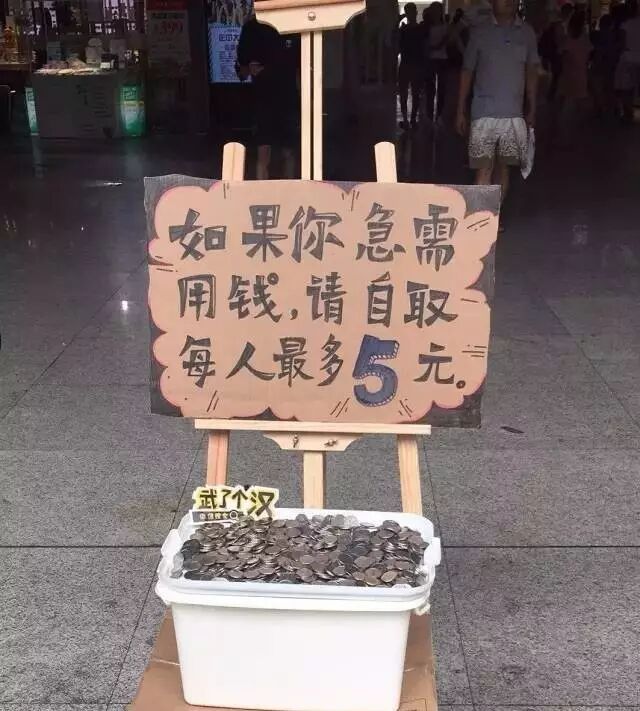 如果你急需
用钱,请自取
每人最多5元。
武了个汉